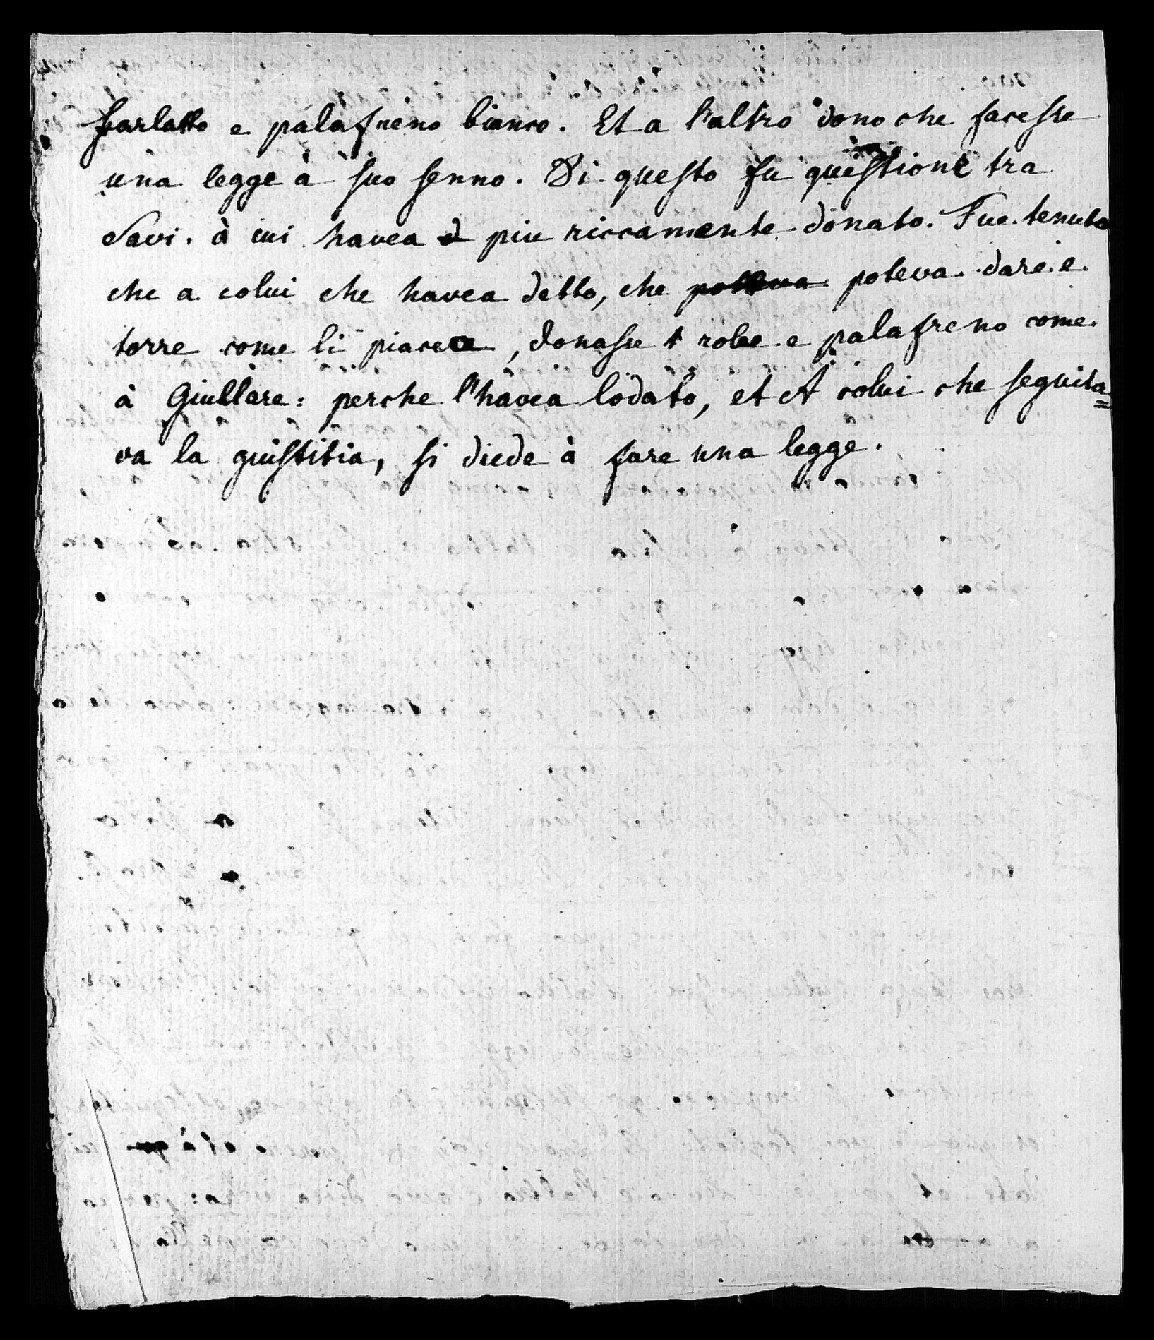 scarlatto e palafreno bianco. Et a l'altro dono che facesse
una legge à suo senno. Di questo fu questione tra
Savi. à cui havea piu riccamente donato. Fue tenuto
che a colui che havea detto, che poteva poteva dare e
torre come li piacea, donasse robe e palafreno come
à Giullare: perche l'havea lodato, et A colui che seguita=
va la giustitia, si diede à fare una legge.